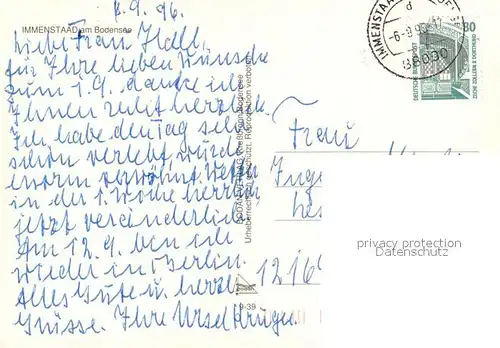 8.9.96.
IMMENSTAAD am Bodensee
Liebe Frau Hall,
für Ihre lieben Wünsche
zum 1.9. danke ich
Ihnen recht herzlich.
Ich habe den Tag sehr
schön verlebt, wurde
enorm verwöhnt. Wetter
in der 1. Woche herrlich,
jetzt veränderlich.
Am 12.9. bin ich
wieder in Berlin.
Alles Gute u. herzl.
Grüsse. Ihre Ursel Krüger.
Urheberrechtlich geschützt. Reproduktion verboten.
9-39
IMMENSTAAD
d
-6-9.96
88090
80
DEUTSCHE BUNDESPOST
ZECHE ZOLLERN II DORTMUND
Frau
privacy protection
Datenschutz
1216